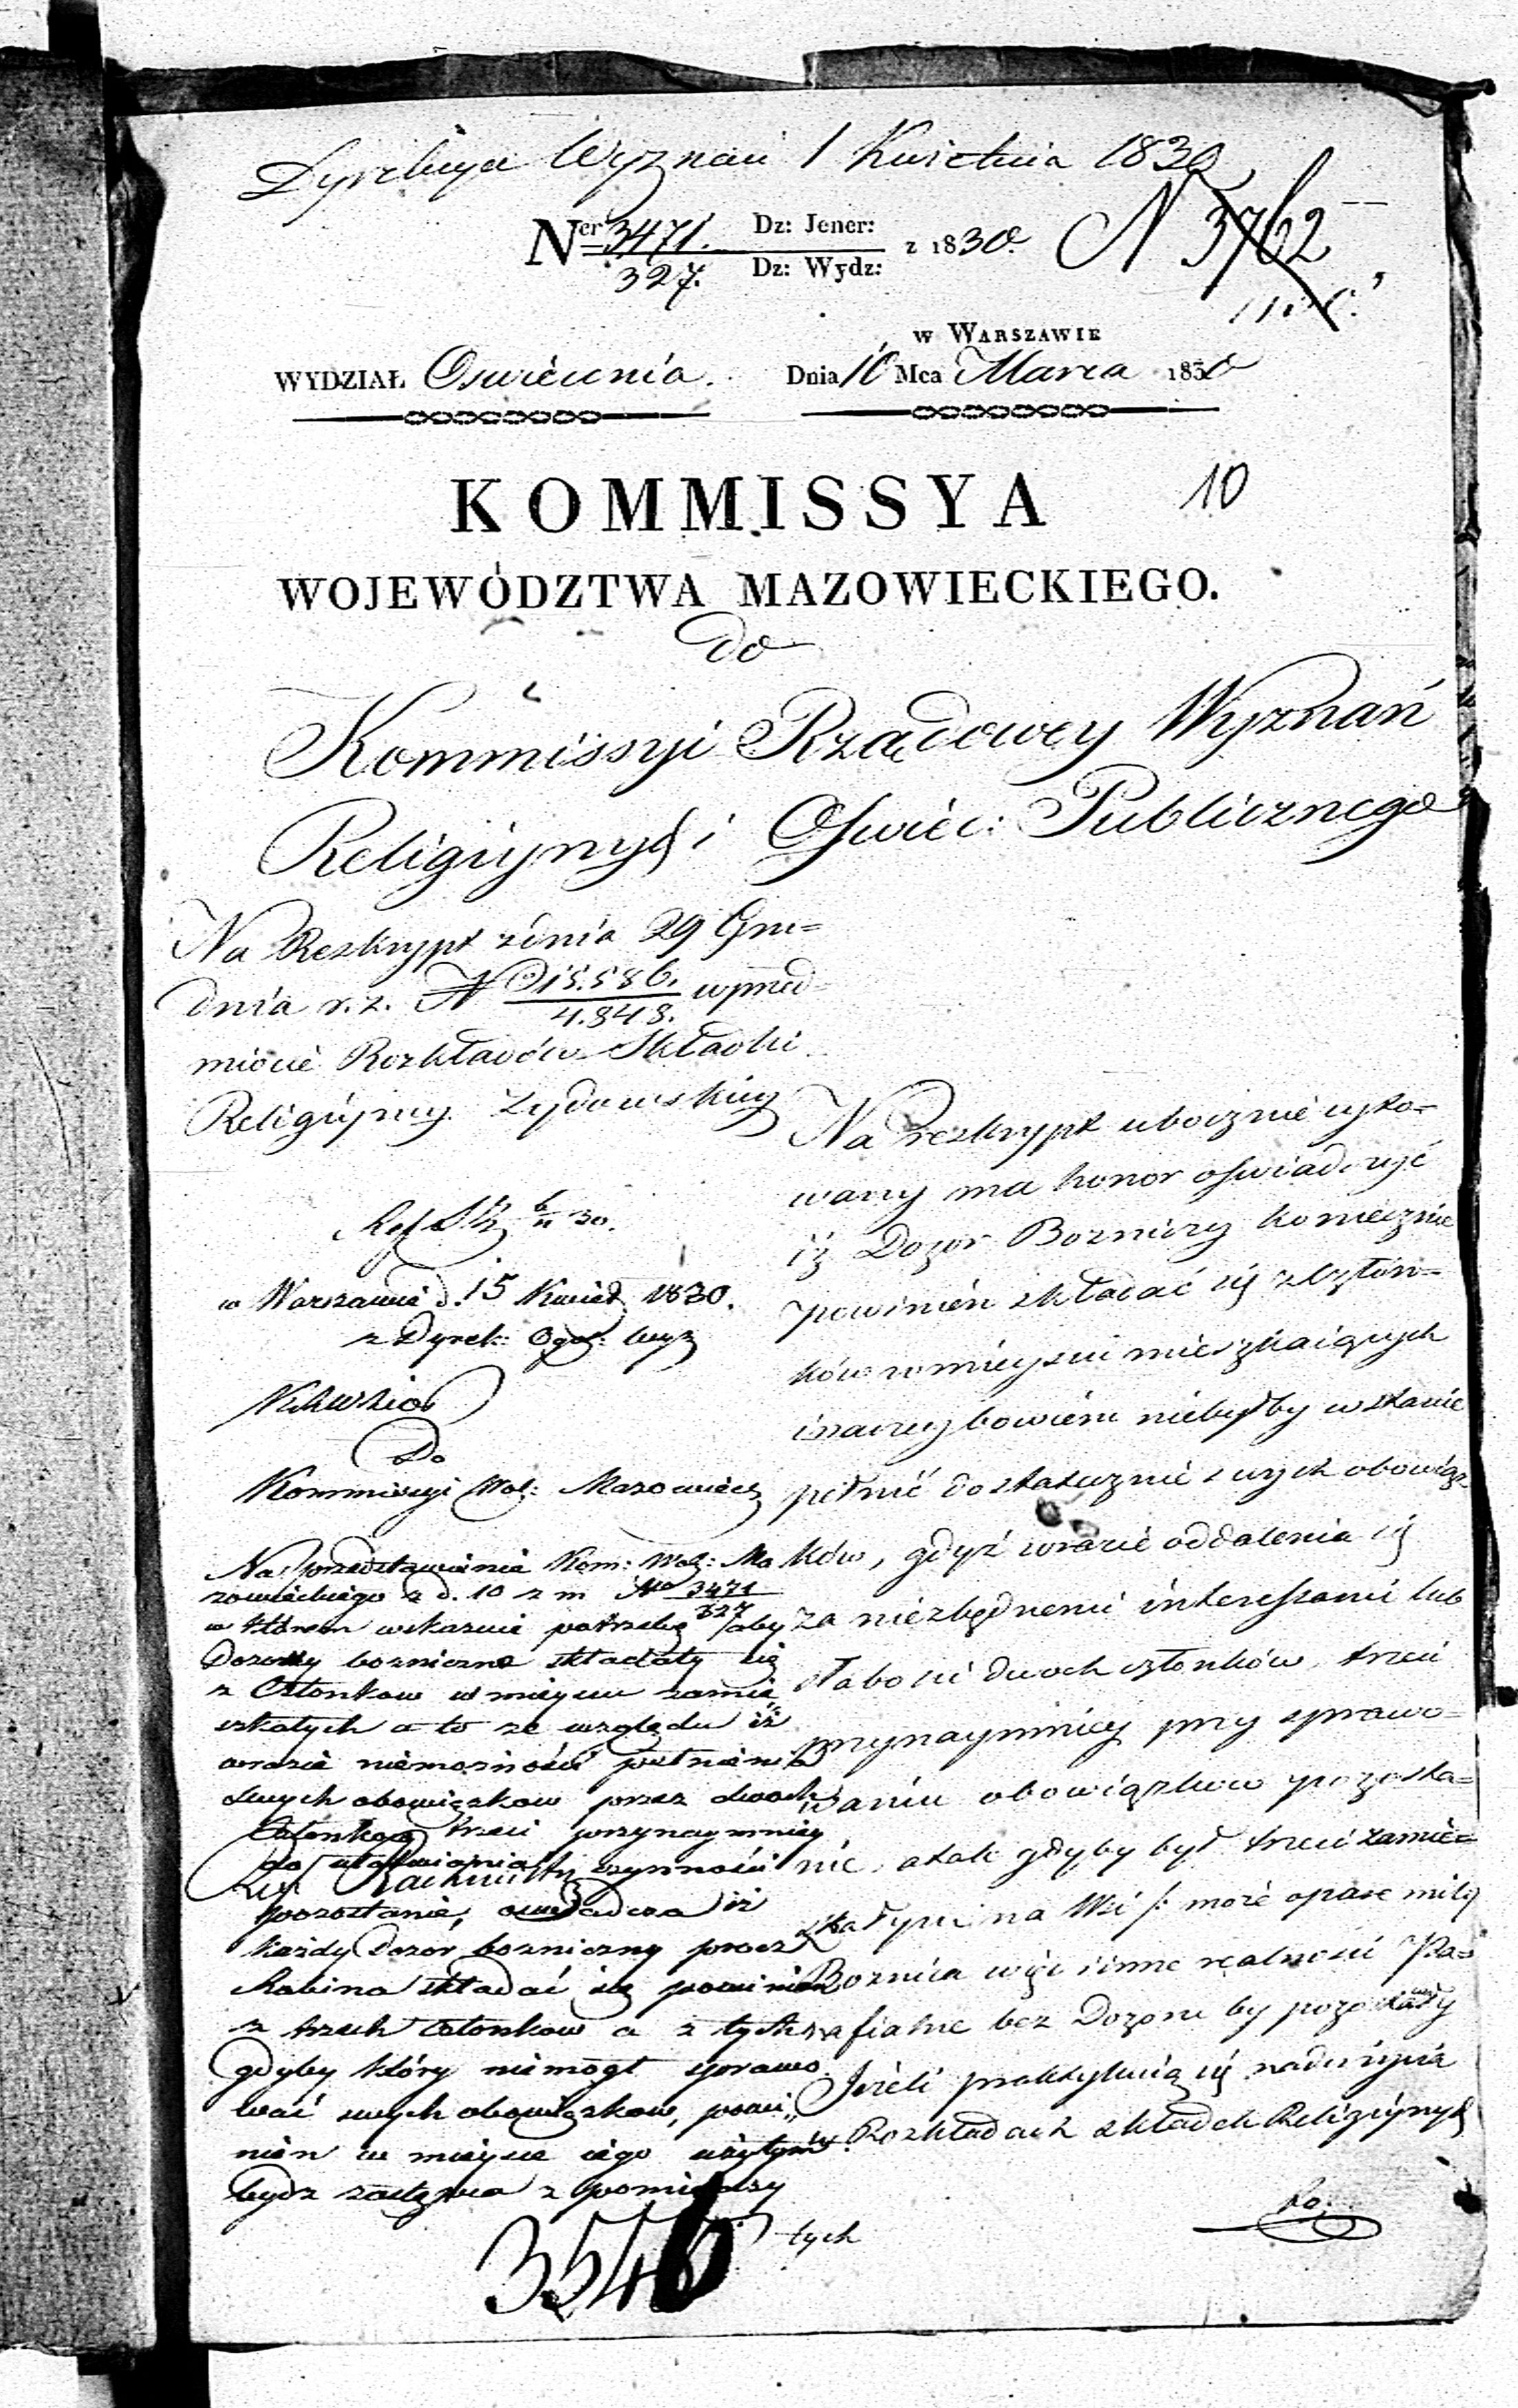 Dyrekcya Wyznań 1 Kwietnia 1830
Ner 3471. Dz: Jener: z 1830. N 3762
327. Dz: Wydz:
w Warszawie
WYDZIAŁ Oswiecenia. Dnia 10 Mca Marca 1830
10
KOMMISSYA
WOJEWÓDZTWA MAZOWIECKIEGO.
do
Kommissyi Rządowey Wyznań
Religiynych i Oswiec: Publicznego
Na Reskrypt zdnia 29 Gru=
dnia r. z. N 15.586. wprzed=
4.848.
miocie Rozkładów Składki
Religiyney Zydowskiey
Na reskrypt ubocznie cyto=
wany ma honor oswiadczyć
iż Dozor Bozniczy koniecznie
powinien składać się z człon=
ków wmieyscu mieszkaiących
inaczey bowiem niebyłby wstanie
pełnić dostatecznie swych obowiąz
ków, gdyż wrazie oddalenia się
za niezbędnemi interessami lub
słabosci dwoch członków, trzeci
przynaymniey przy sprawo=
waniu obowiązkow pozosta=
nie, a tak gdyby był trzeci zamie=
szkałym na Wsi /: może o parę mil
Boznica więc i inne realnosci Pa=
rafialne bez Dozoru by pozostały
Jeżeli praktykuią się nadużycia
w Rozkładach składek Religiynych
w Warszawie d. 15 Kwiet 1830.
z Dyrek: Ogól: Wyz
Do
Kommissyi Woj: Mazowieck
Na przedstawienie Kom: Woj: Ma
zowieckiego z d. 10 z m No 3471
327
w którem wskazuie potrzebę aby
Dozory boznicze składały się
z Członkow w mieyscu zamie
szkałych a to ze względu iż
wrazie niemożności pełnienia
swych obowiązkow przez dwoch
Członkow trzeci przynaymniey
do załatwiania czynności
pozostanie, oswiadcza iż
każdy Dozor bozniczny procz
Rabina składać się powinien
z trzech członkow a z tych
gdyby który niemogł sprawo
wać swych obowiązkow, powi„
nien w mieysce iego użytym
bydz zastępca z pomiędzy
tych
3546